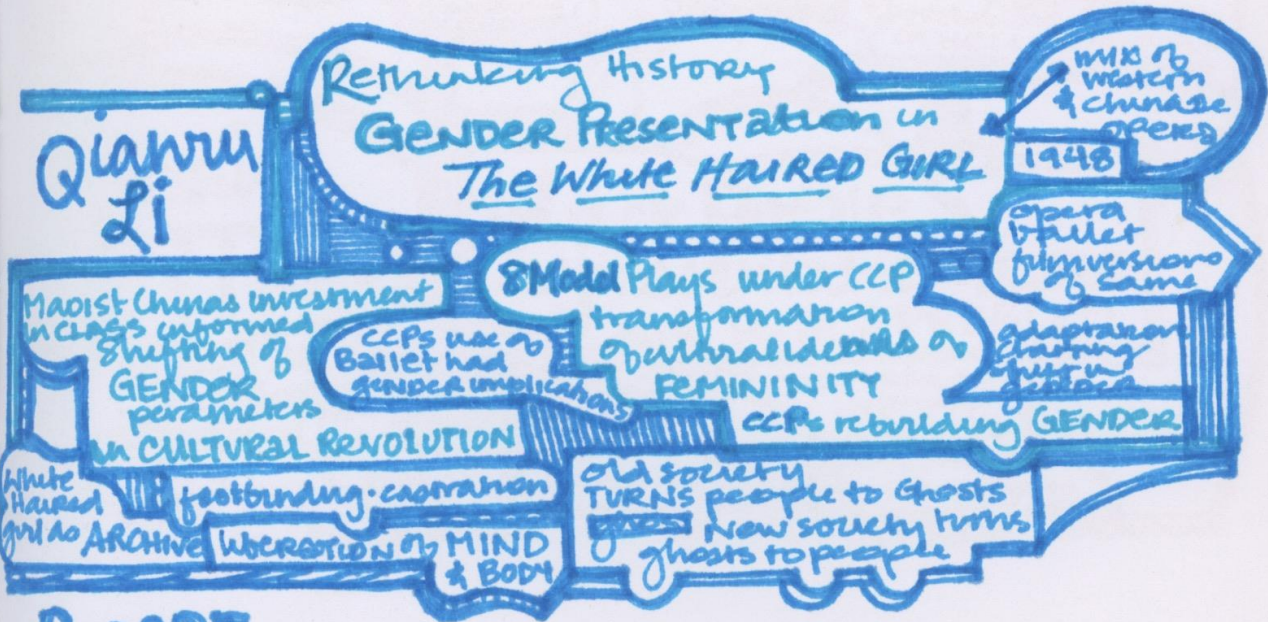 Qianru
Li
Rethinking History
GENDER PRESENTation in
The White HAIRED GIRL
mix of
western
& chinese
opera
1948
opera
ballet
film versions
of same
Maoist Chinas investment
in CLASS informed
shifting of
GENDER
parameters
in CULTURAL REVOLUTION
CCPs use of
Ballet had
gender implications
8 Model Plays under CCP
transformation
of cultural ideals of
FEMININITY
adaptation
charting
shift in
gender
CCPs rebuilding GENDER
White
Haired
girl as ARCHIVE
footbinding · castration
of MIND
& BODY
old society
TURNS people to Ghosts
New society turns
ghosts to people